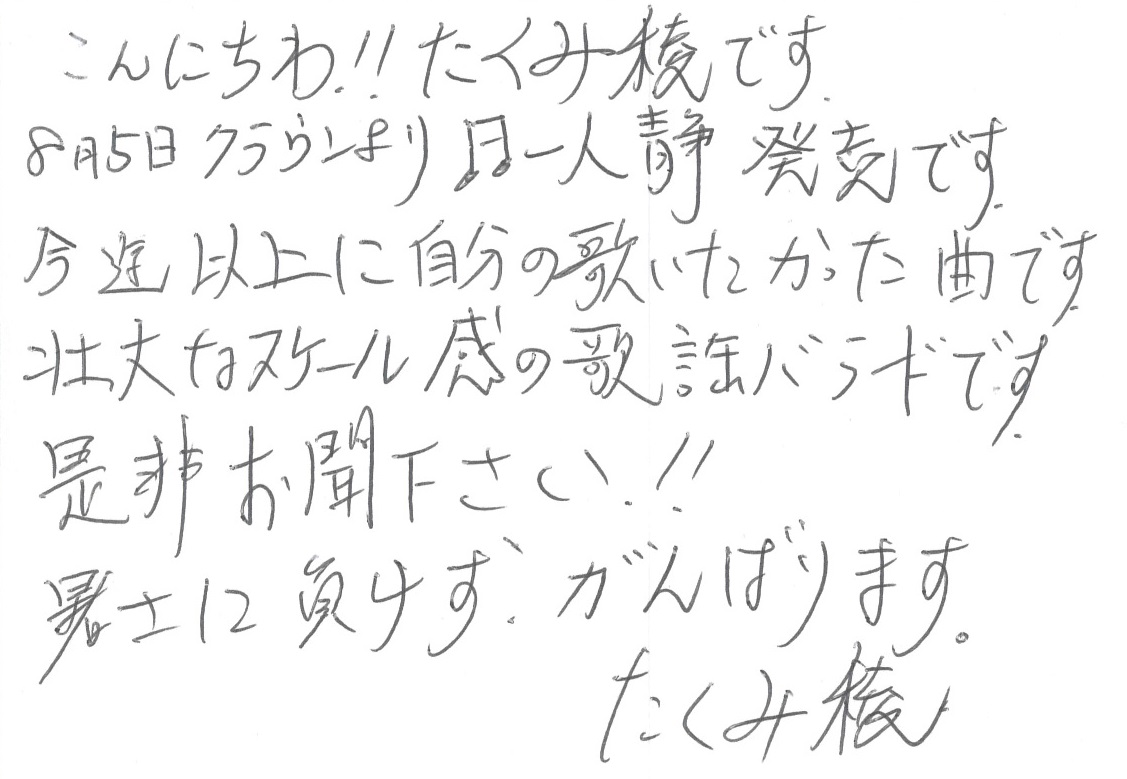 こんにちわ!! たくみ稜です.
8月5日 クラウンより ♪♫一人静 発売です.
今迄以上に自分の歌いたかった曲です.
壮大なスケール感の歌謡バラードです.
是非お聞下さい.!!
暑さに負けず、がんばります。
たくみ稜